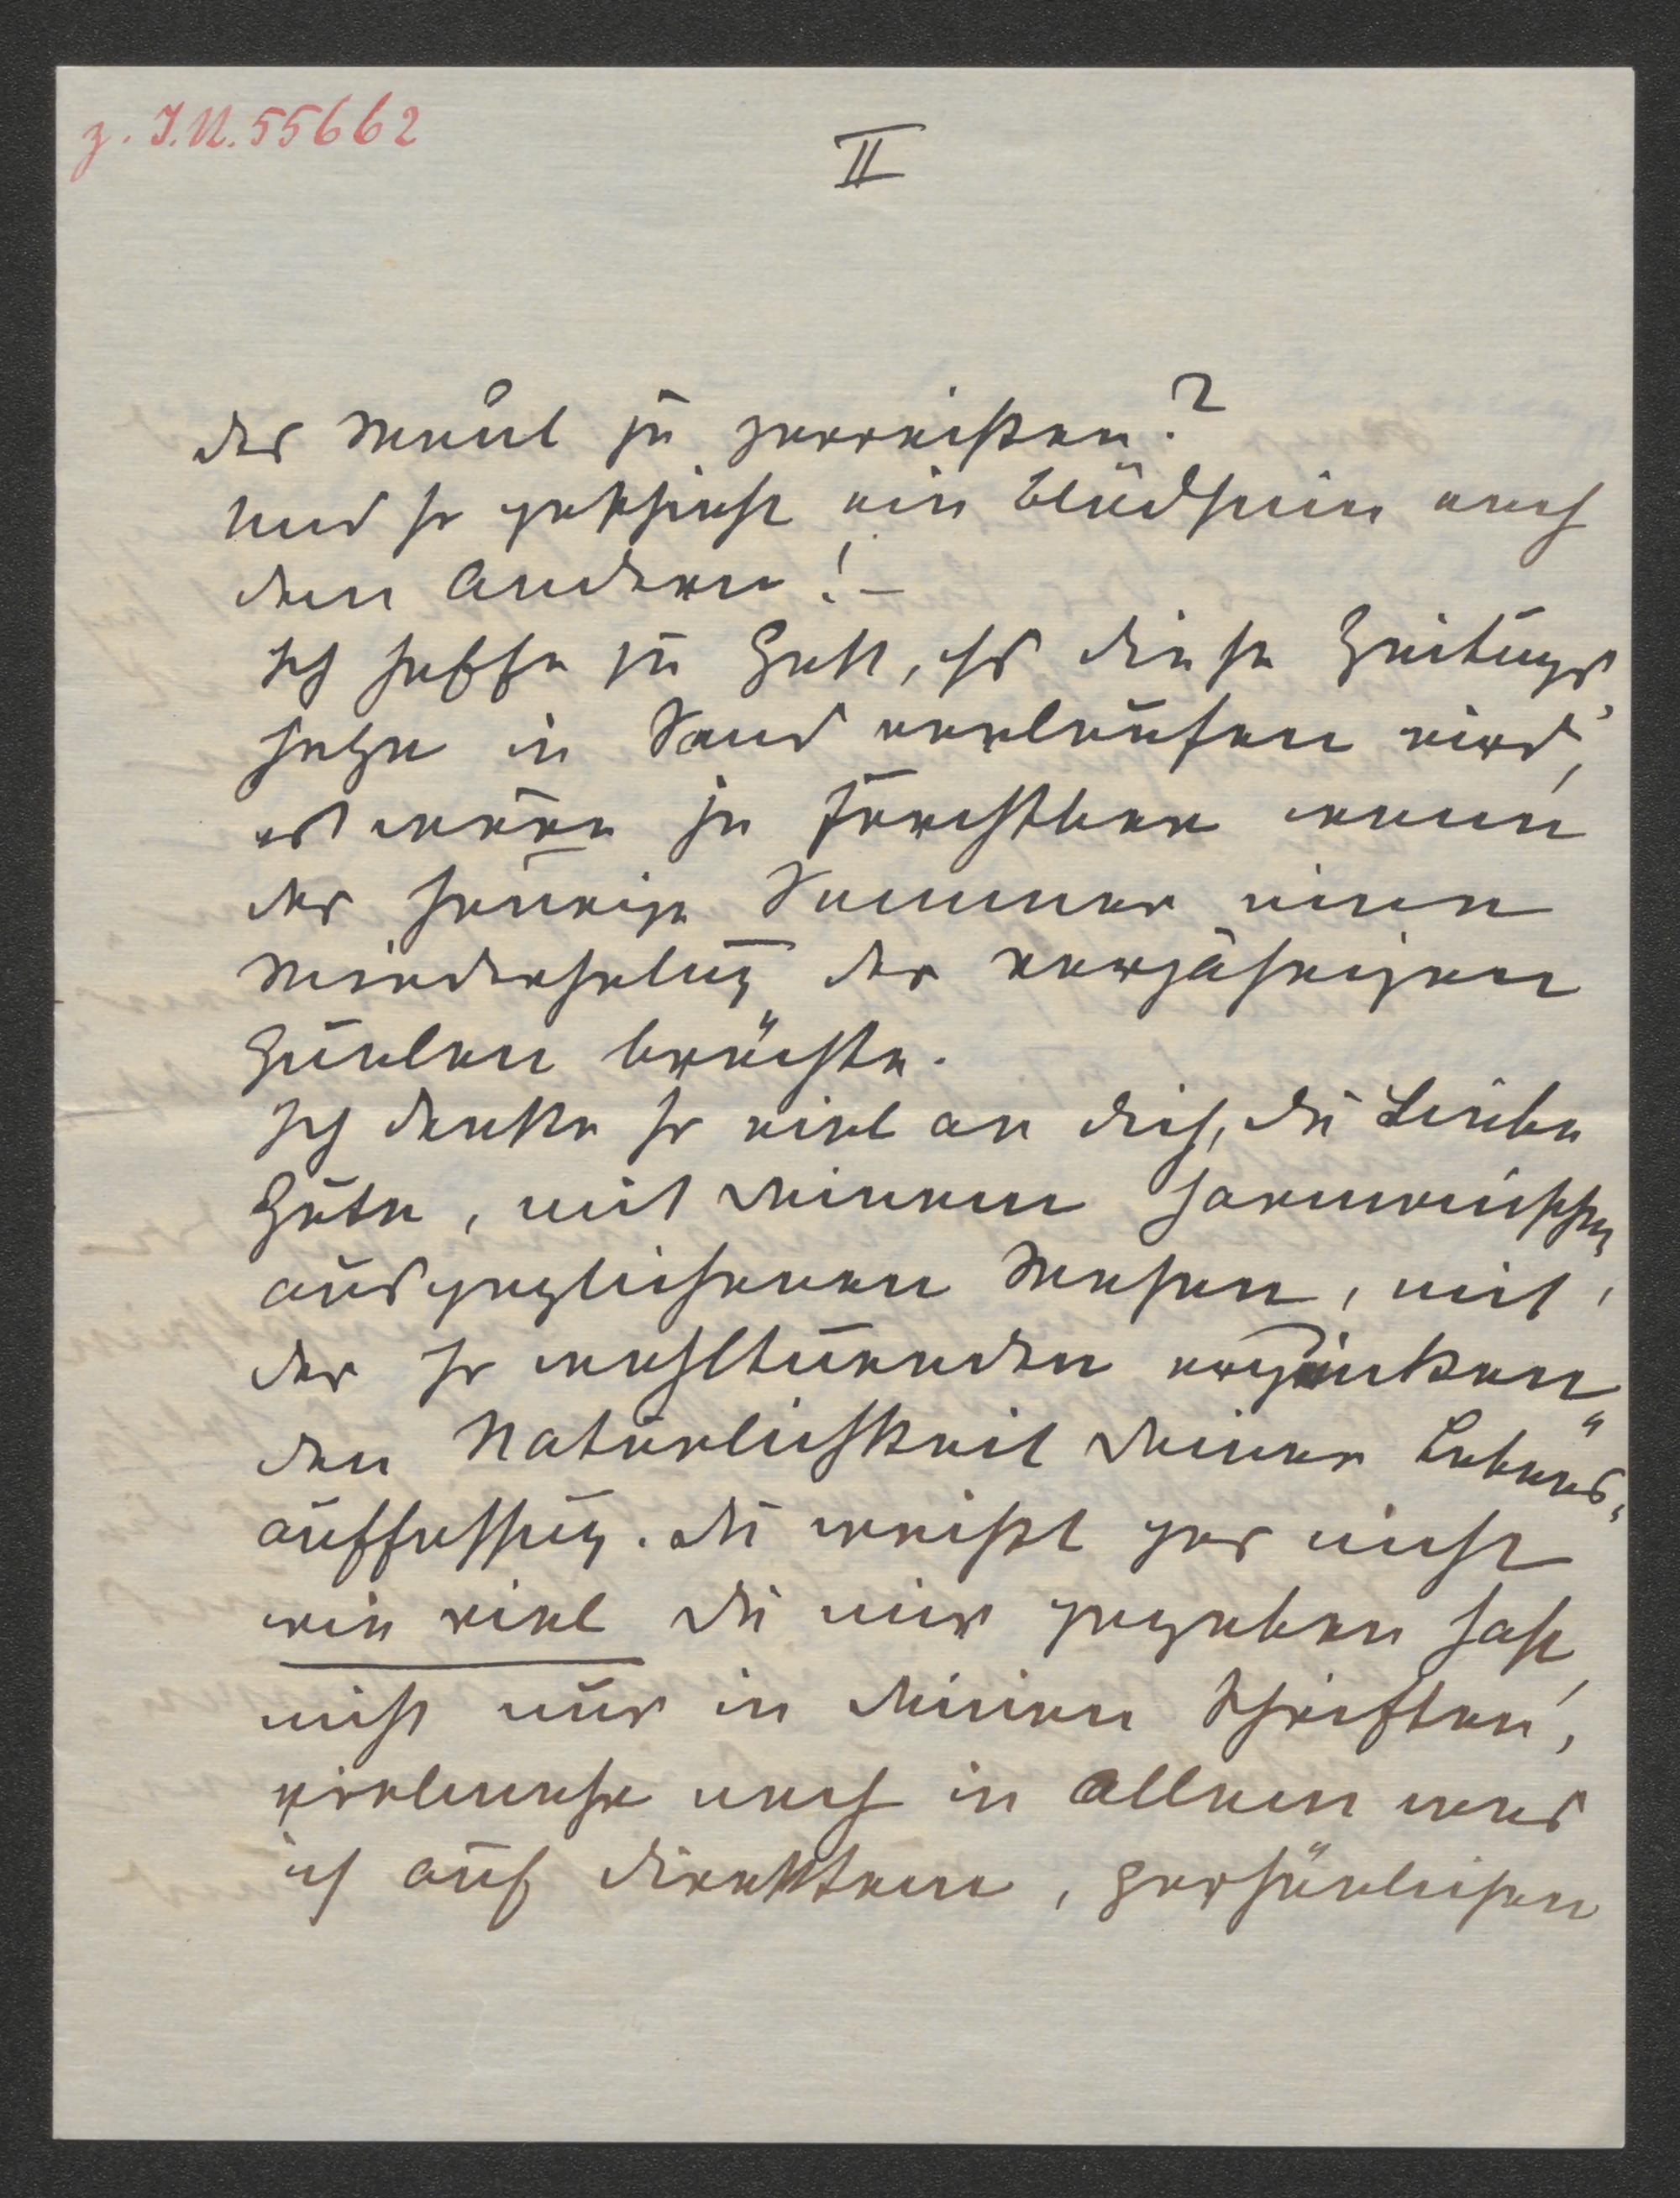 z. I.N. 55662
II
das Maul zu zerreißen?
Und so geschieht ein Blödsinn nach
dem Andern! –
Ich hoffe zu Gott, daß diese Zeitungs-
hetze in Sand verlaufen wird,
es wäre ja furchtbar wenn
der heurige Sommer eine
Wiederholung der vorjährigen
Qualen brächte.
Ich denke so viel an dich, du Liebe
Gute, mit deinem harmonischen
ausgeglichenen Wesen, mit
der so wohltuenden erquicken-
den Natürlichkeit deiner Lebens-
auffassung. Du weißt gar nicht
wie viel du mir gegeben hast,
nicht nur in deinen Schriften,
vielmehr noch in Allem was
ich auf direktem, persönlichen